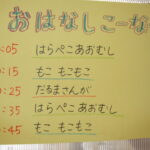 おはなしこーな
:05 はらぺこあおむし
:15 もこ もこもこ
:25 だるまさんが
:35 はらぺこあおむし
:45 もこ もこもこ